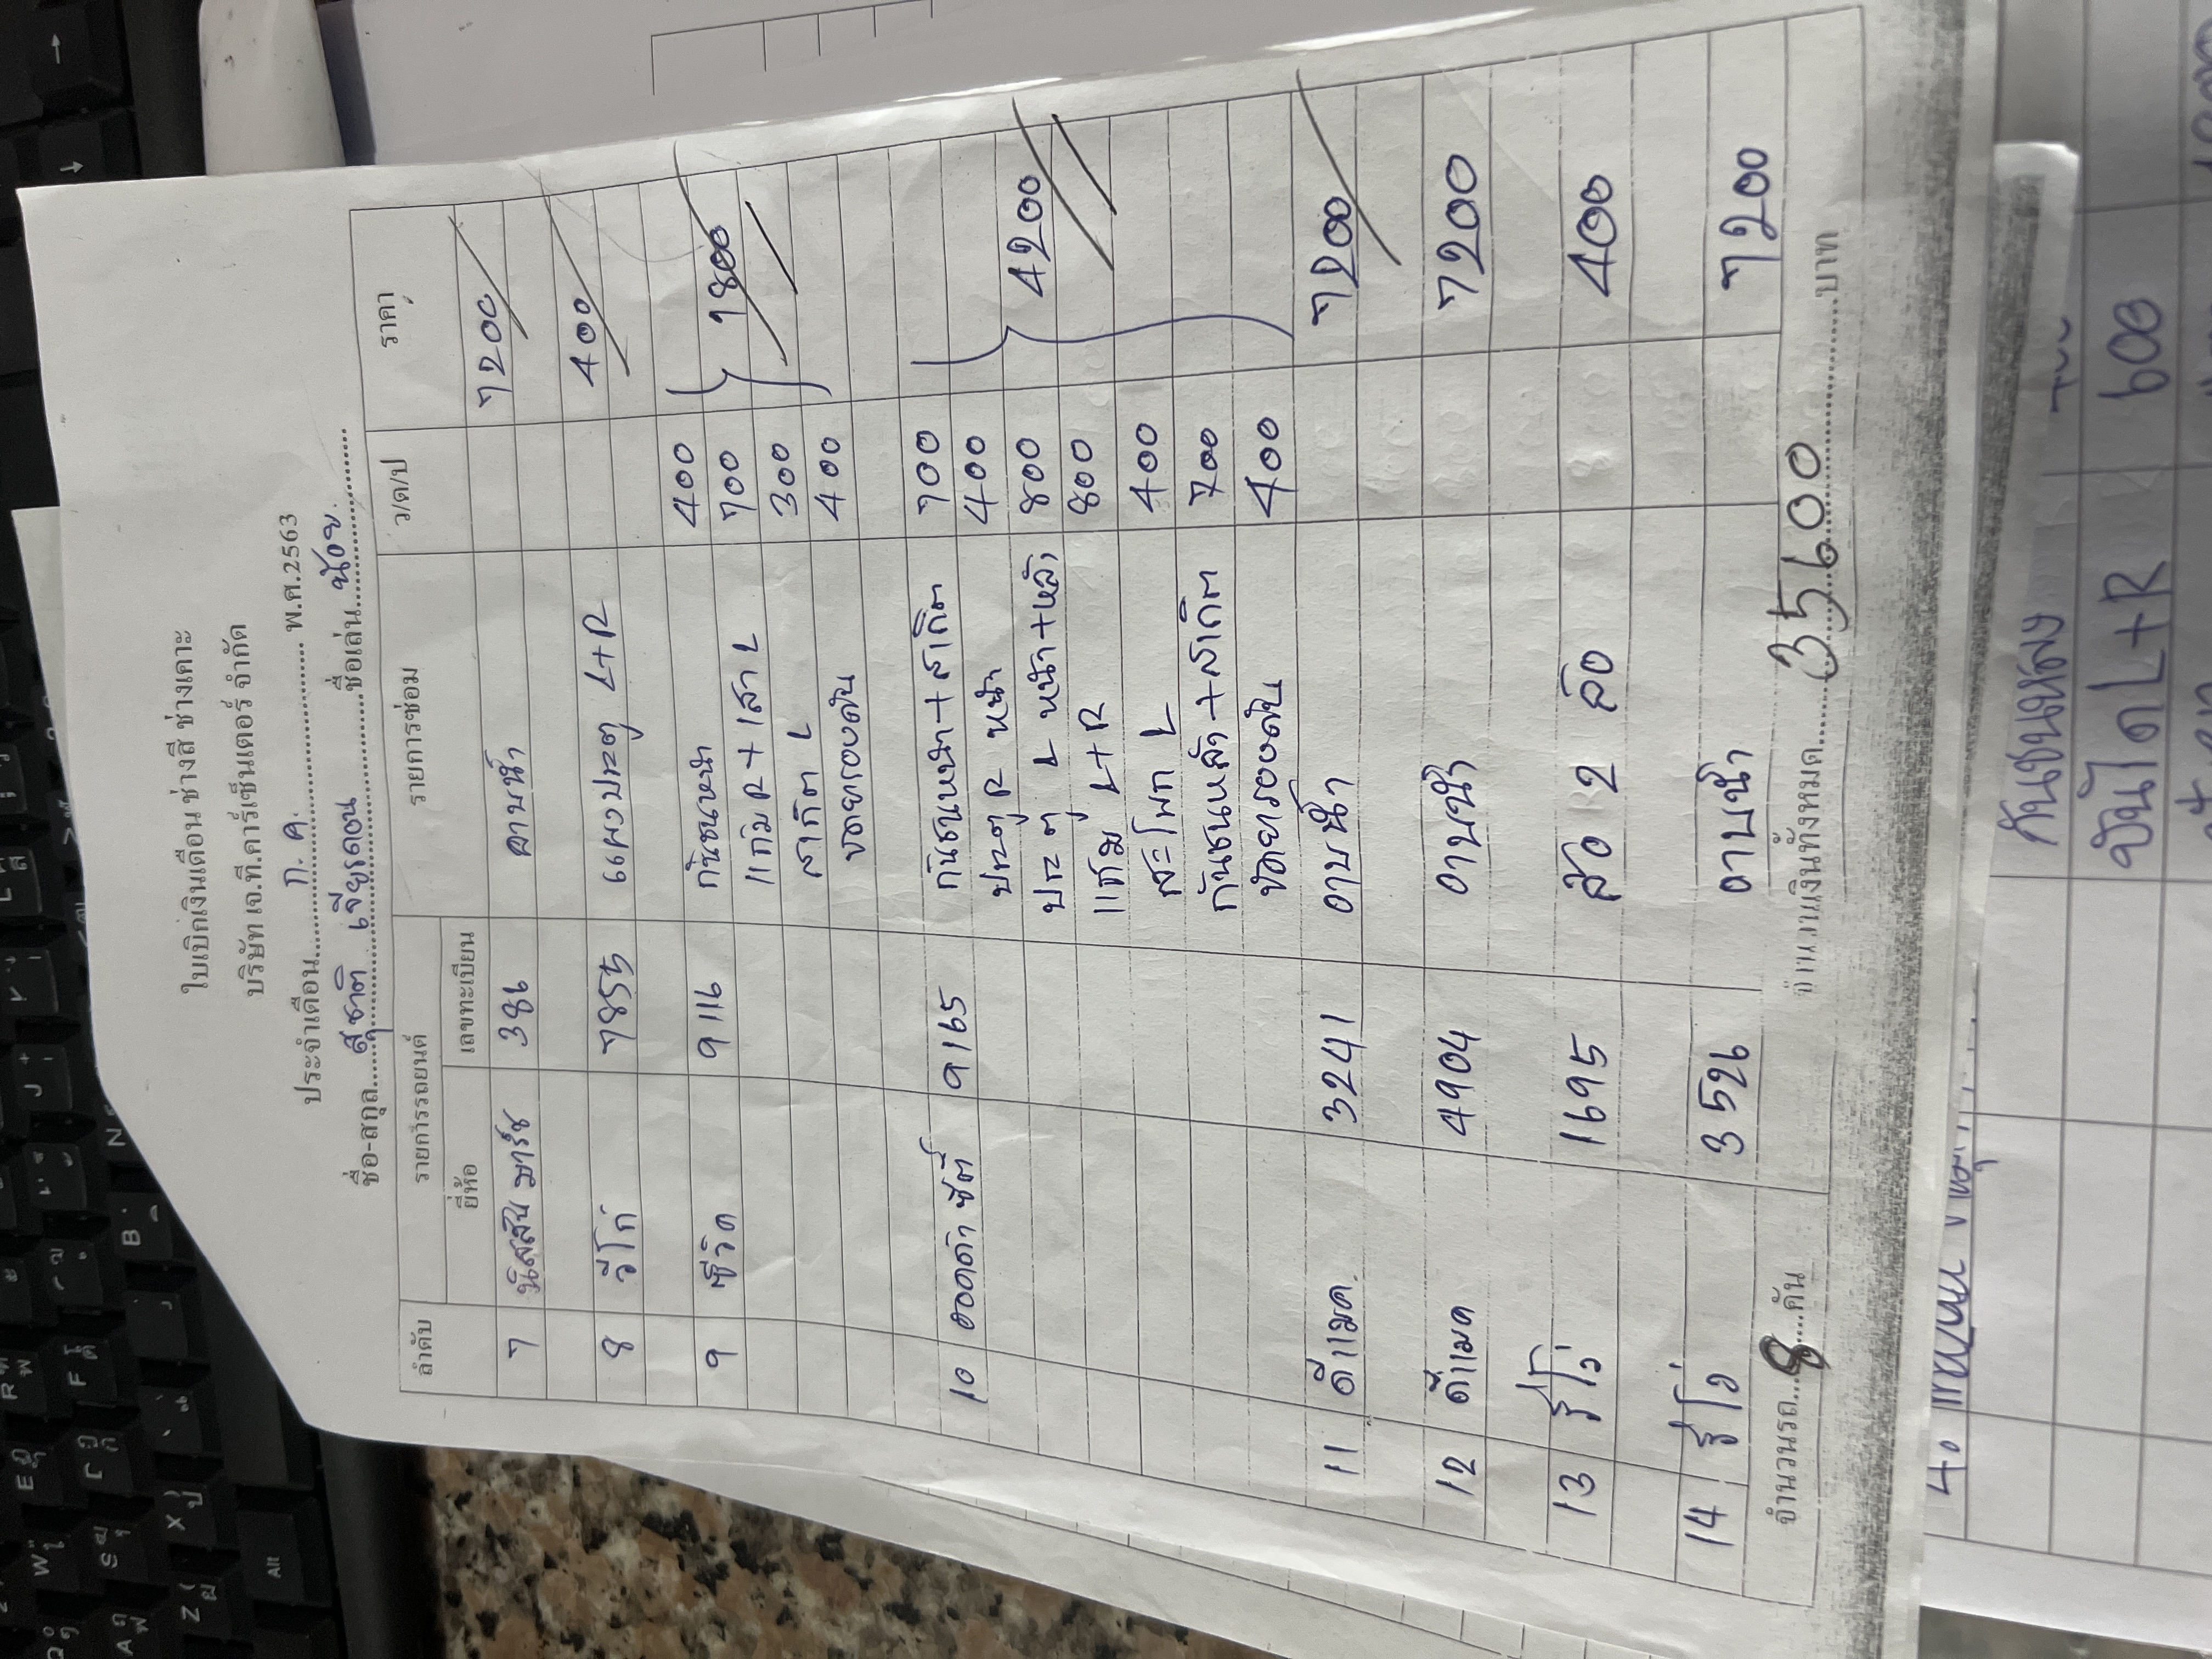 ใบเบิกเงินเดือน ช่างสี ช่างเคาะ
บริษัท เจ.ที.คาร์เซ็นเตอร์ จำกัด
ประจำเดือน....ก. ค.........พ.ศ.2563
ชื่อ-สกุล....สุชาติ เขียรถอน........ชื่อเล่น...น้อย.....
ลำดับ รายการรถยนต์ รายการซ่อม ว/ด/ป ราคา
ยี่ห้อ เลขทะเบียน
7 นิสสัน มาร์ช 386 อาบน้ำ 7200
8 วีโก้ 7855 แผงประตู L+R 400
9 ซีวิค 9116 กันชนหน้า 400
แก้ม R + เสา L 700 1800
สเกิต L 300
ขัดยกรอบคัน 400
10 ฮอนด้า ซิตี้ 9165 กันชนหน้า+สเกิต 700
ประตู R หน้า 400
ประตู L หน้า+หลัง 800 4200
แก้ม L+R 800
สะโพก L 400
กันชนหลัง+สเกิต 700
ขัดยารอบคัน 400
11 ดีแมค 3241 อาบน้ำ 7200
12 ดีแมค 4904 อาบน้ำ 7200
13 รีโว่ 1695 ล้อ 2 ล้อ 400
14 รีโว่ 3526 อาบน้ำ 7200
จำนวนรถ...8....คัน จำนวนเงินทั้งหมด....35600......บาท
40
กันชนหลัง
บันได L+R 600